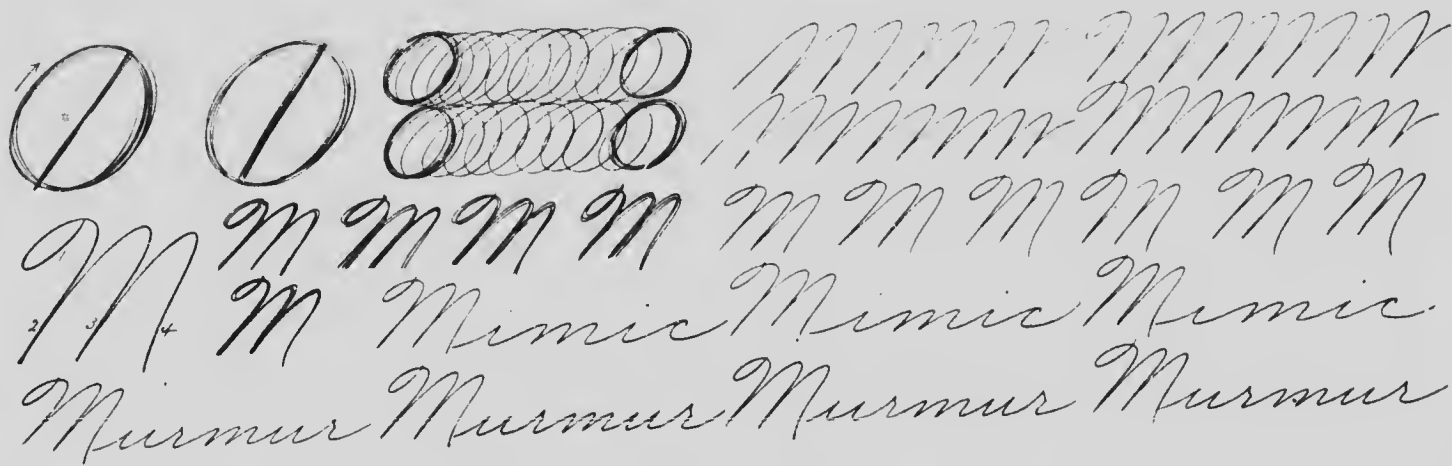 M M M M M M M M M M
M
2 3 4
M Mimic Mimic Mimic
Murmur Murmur Murmur Murmur